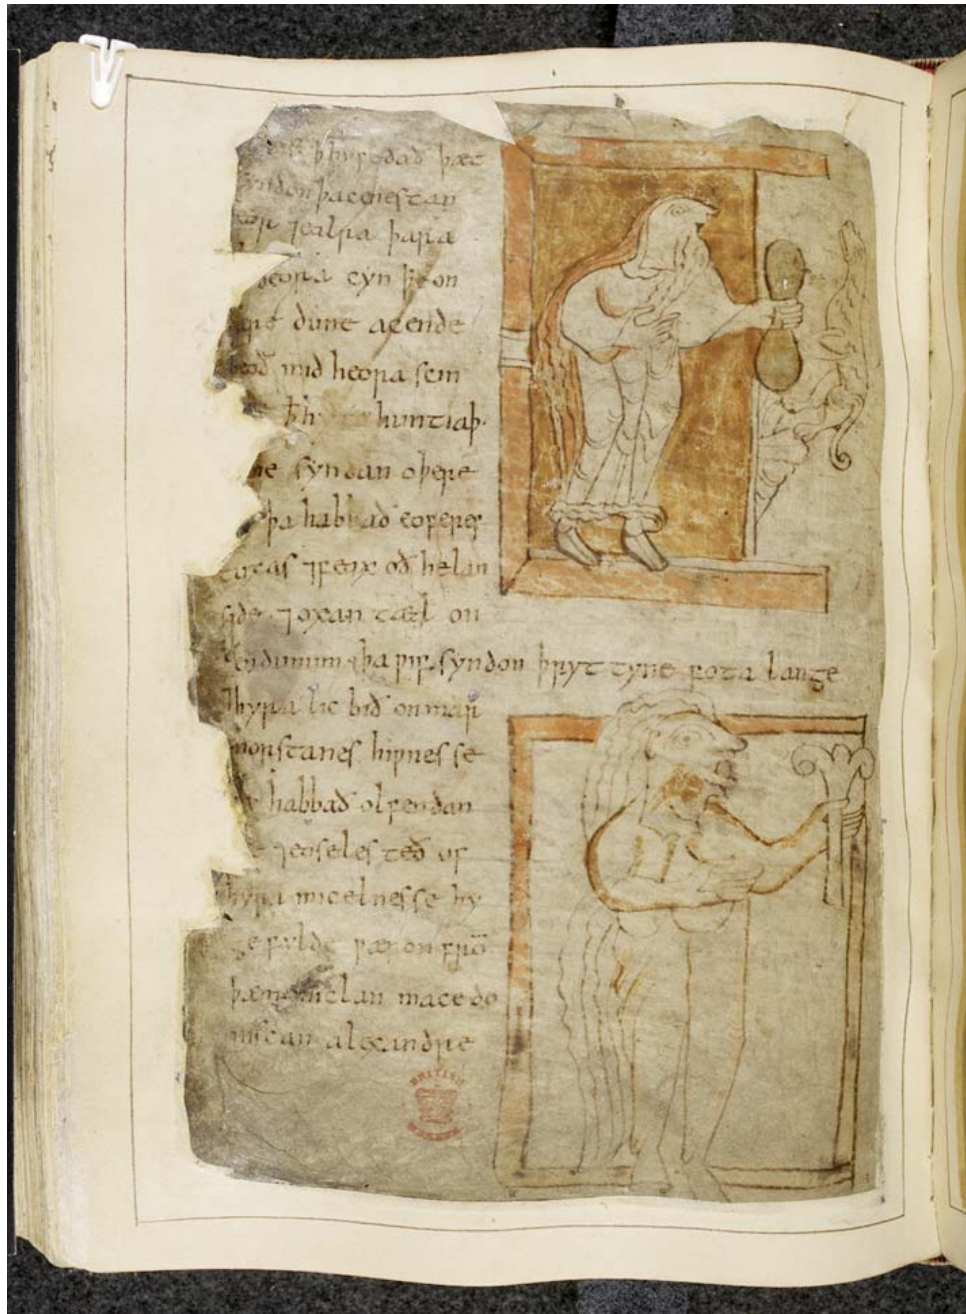 ꝥ hy fedað þæt
syndon þa cenestan
deor ⁊ ealra þara
deora cyn þe on
þære dune acende
beoð mid heora scin
ꝥ hy huntiaþ·
ne syndan oþere
þa habbað eoferes
tuxas ⁊ feax oð helan
side ⁊ oxan tægl on
lendunum þa ƿif syndon þryttyne fota lange
⁊ hyra lic bið on mar
morstanes hiƿnesse
⁊ hy habbað olfendan
⁊ eoseles teð of
hyra micelnesse hy
gefylde ƿæron frā
þæm miclan macedo
niscan alexandre
BRITISH
MUSEUM